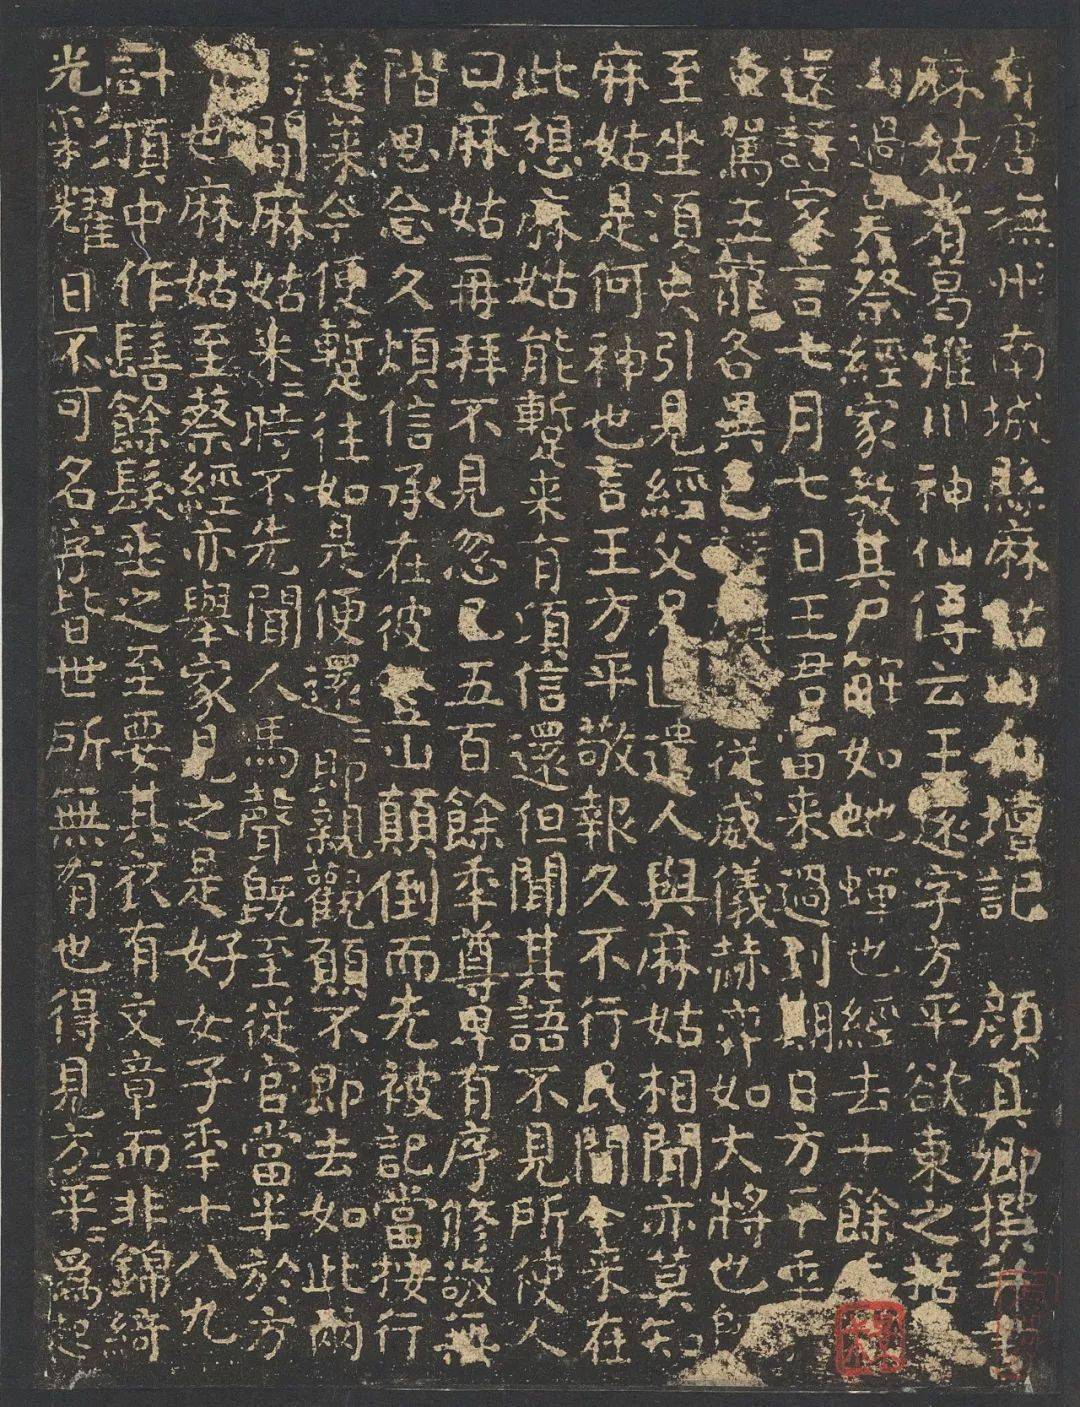 有唐撫州南城縣麻姑山仙壇記　顏真卿撰并書
麻姑者葛稚川神仙傳云王遠字方平欲東之括
山過吳蔡經家教其尸解如虵蟬也經去十餘
還語家言七月七日王君當来過到期日方平至
車駕五龍各異色從威儀赫弈如大將也
至坐須臾引見經父兄遣人與麻姑相聞亦莫知
麻姑是何神也言王方平敬報久不行民間今来在
此想麻姑能暫来有頃信還但聞其語不見所使人
曰麻姑再拜不見忽已五百餘年尊卑有序修敬無
階思念久煩信承在彼登山顛倒而先被記當按行
蓬莱今便暫往如是便還還即親觀願不即去如此兩
時間麻姑来来時不先聞人馬聲既至從官當半於方
也麻姑至蔡經亦舉家見之是好女子年十八九
許頂中作髻餘髮垂之至要其衣有文章而非錦綺
光彩耀日不可名字皆世所無有也得見方平方平為起